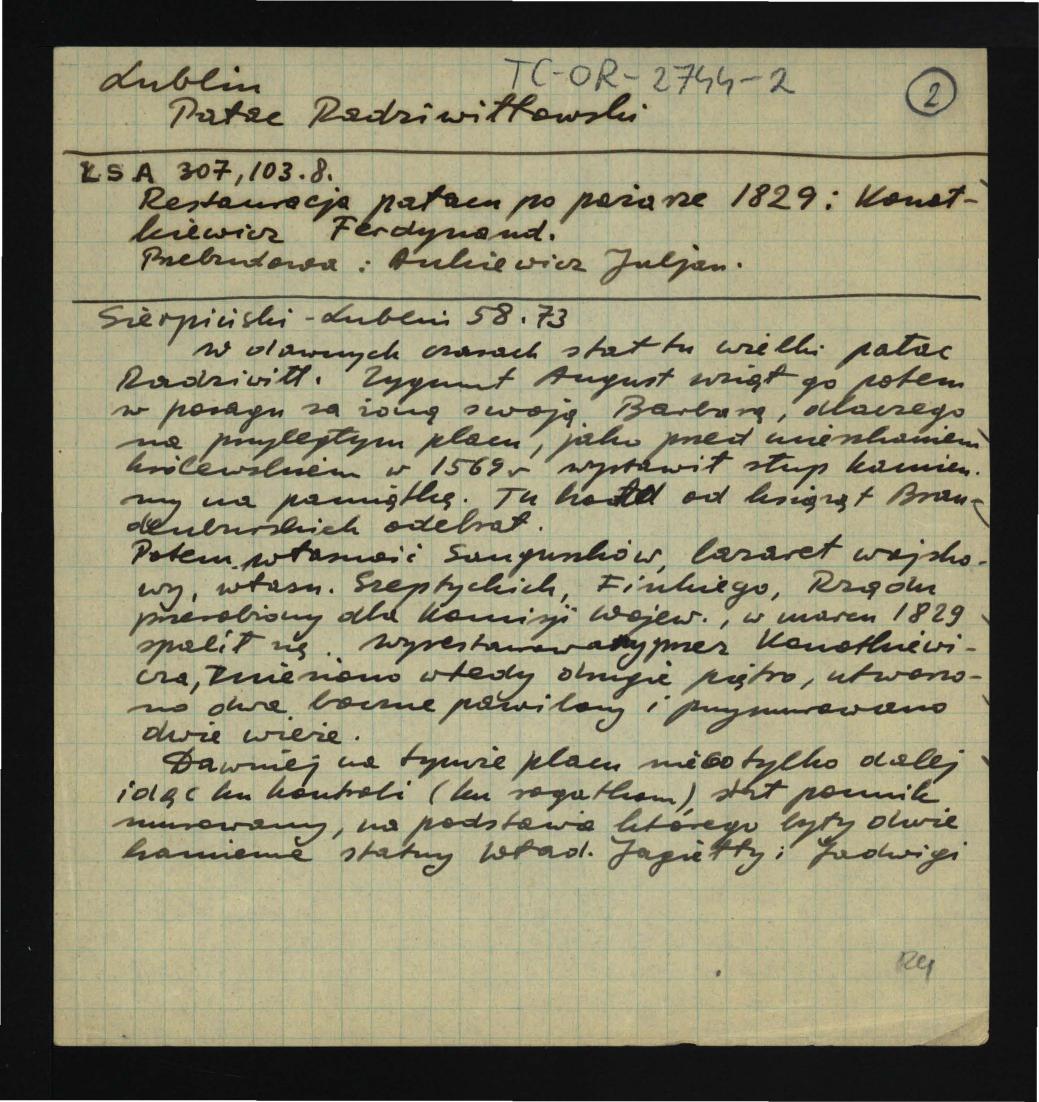 Lublin
TC-OR-2744-2
2
Pałac Radziwiłłowski
ŁSA 307,103.8.
Restauracja pałacu po pożarze 1829: Konot-
kiewicz Ferdynand.
Przebudowa: Ankiewicz Juljan.
Sierpiński - Lublin 58.73
w dawnych czasach stał tu wielki pałac
Radziwiłł. Zygmunt August wziął go potem
w posagu za żoną swoją Barbarą, dlaczego
na przyległym placu, jako przed mieszkaniem
królewskiem w 1569 r wystawił słup kamien.
ny na pamiątkę. Tu hołd od książąt Bran-
denburskich odebrał.
Potem własność Sanguszków, lazaret wojsko-
wy, własn. Szeptyckich, Finkiego, Rządu
przerobiony dla Komisji wojew., w marcu 1829
spalił się. Wyrestaurowany przez Konotkiewi-
cza, zniesiono wtedy drugie piętro, utworzo-
no dwa boczne pawilony i przymurowano
dwie wieże.
Dawniej na tymże placu nieco tylko dalej
idąc ku kontroli (ku rogatkom), stał pomnik
murowany, na podstawie którego były dwie
kamienne statuy Wład. Jagiełły i Jadwigi